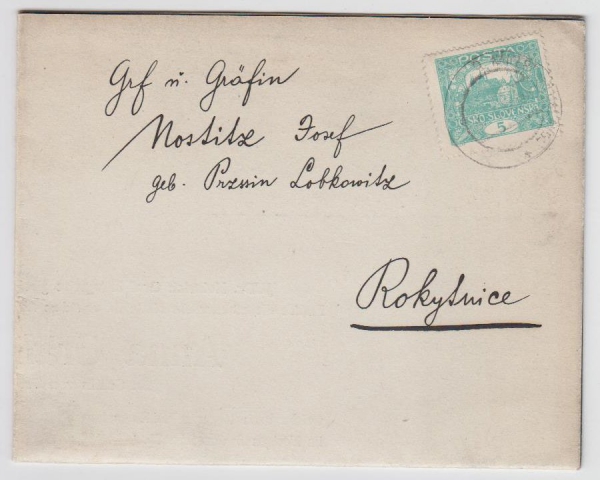 Grf u. Gräfin
Nostitz Josef
geb. Przssin Lobkowitz
Rokytnice
POŠTA
ČESKO-SLOVENSKÁ
5